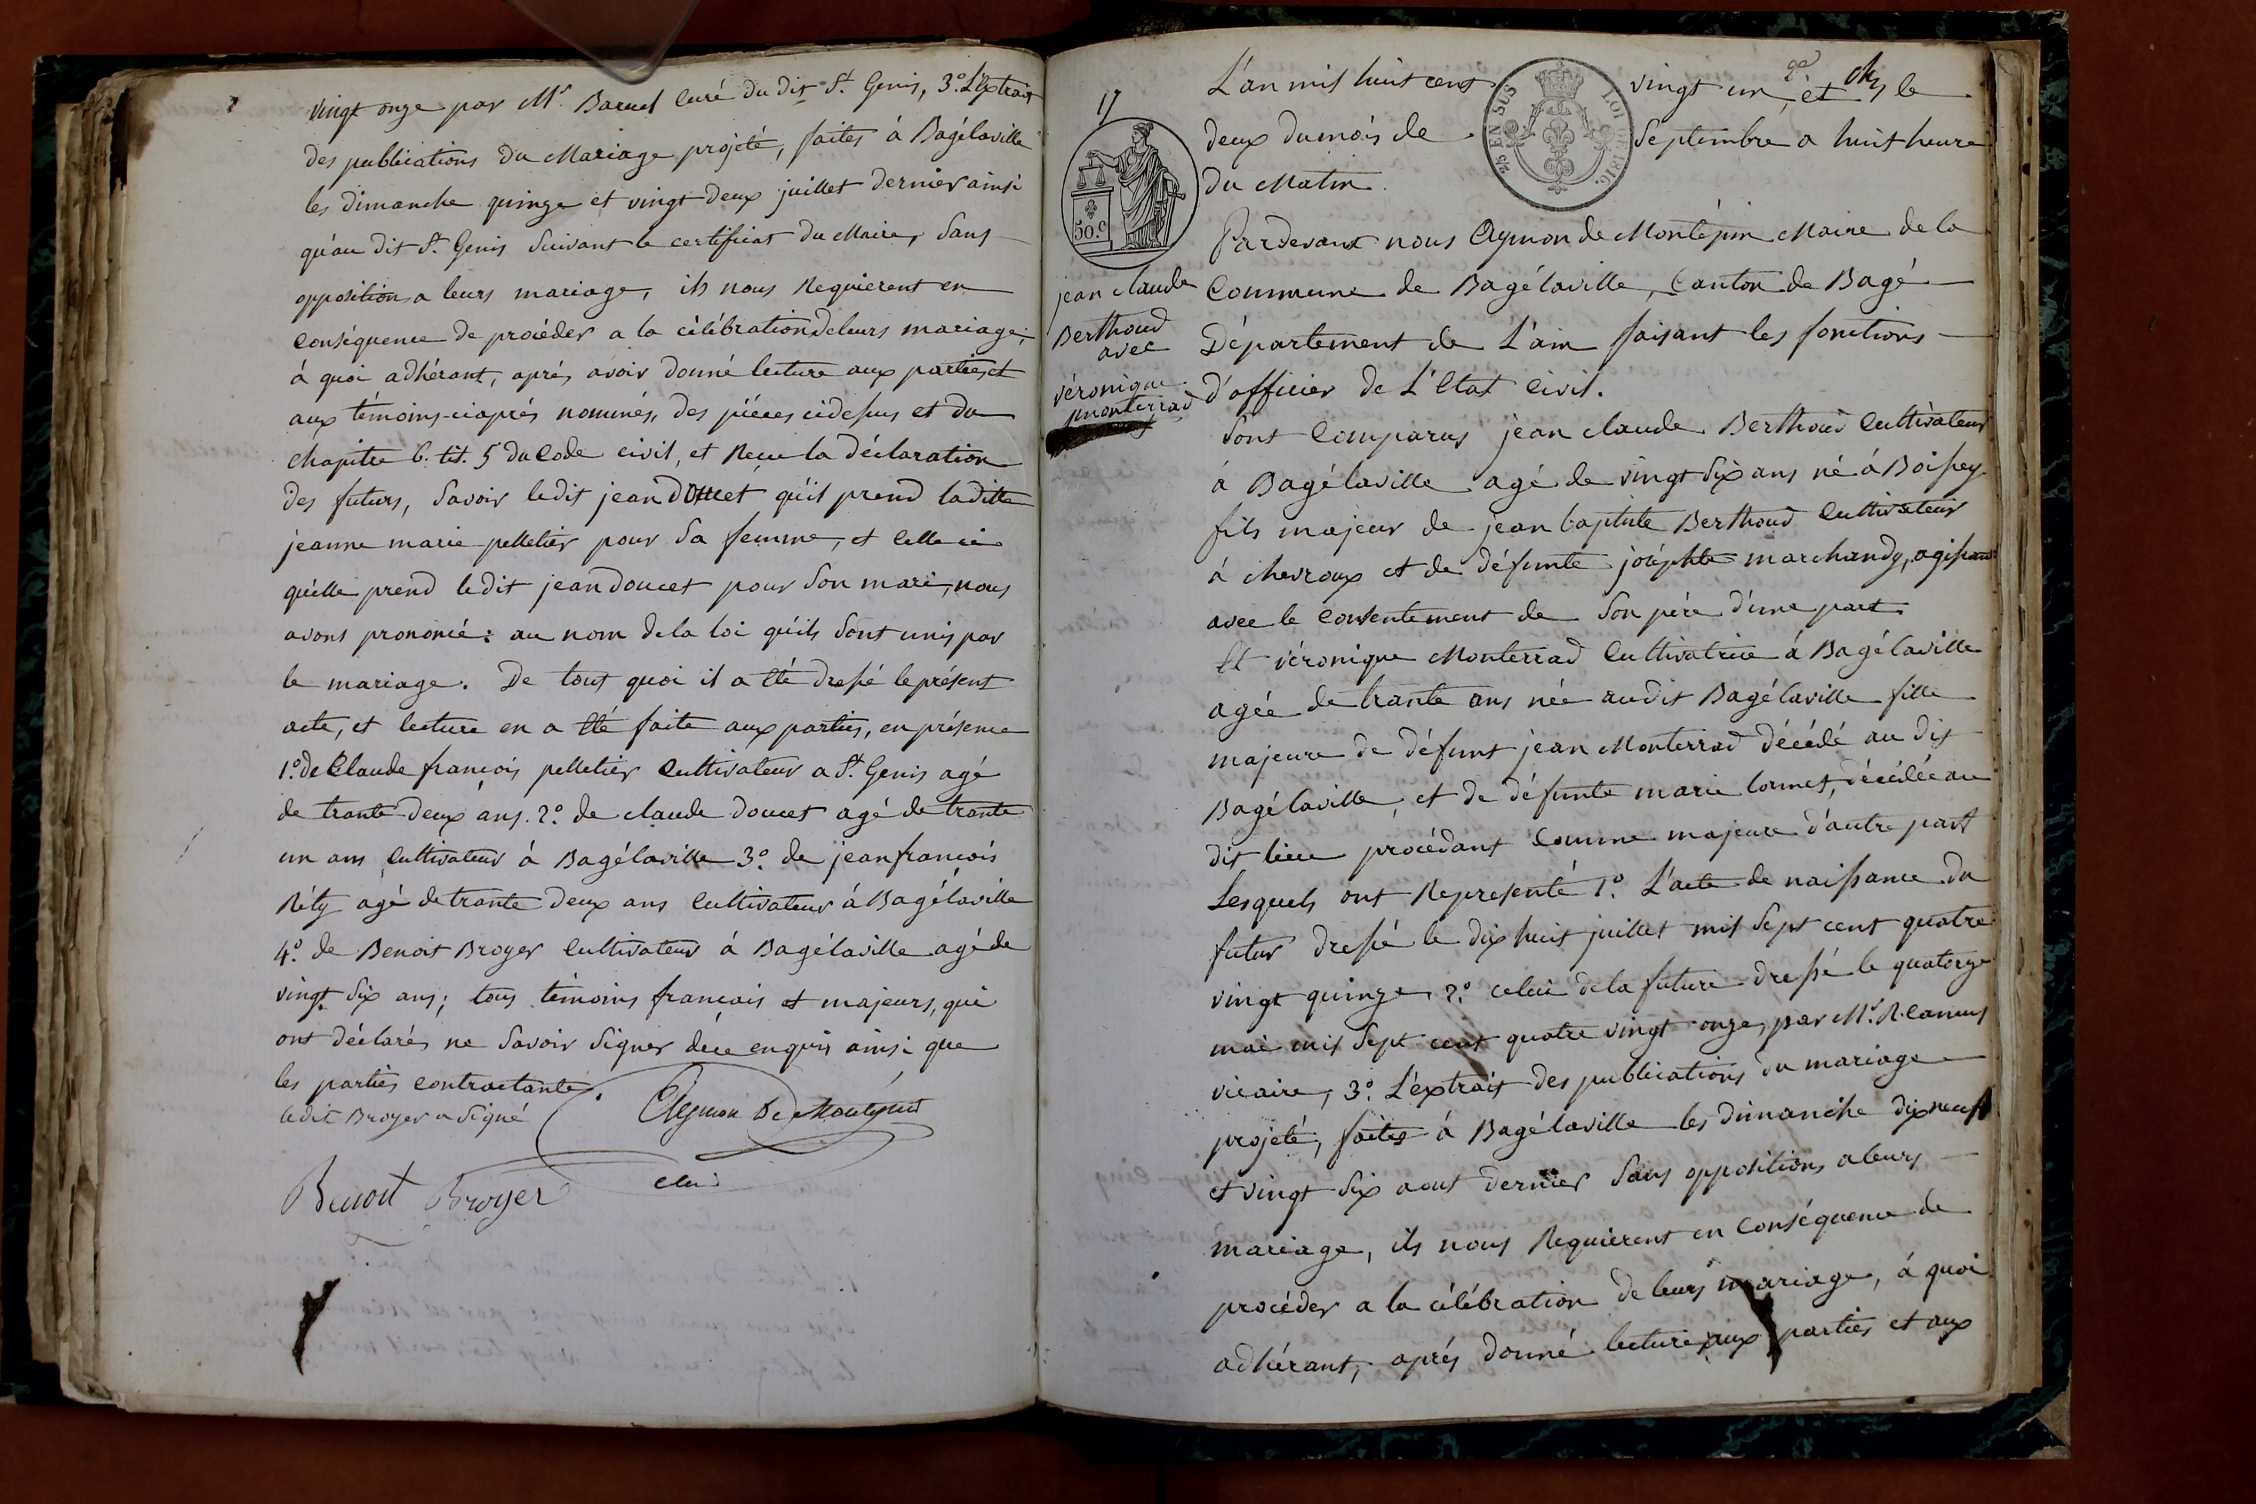 vingt onze par Mr. Baruel curé du dit St. Genis, 3.° L'Extrait
des publications du Mariage projeté, faites à Bagélaville
les dimanche quinze et vingt deux juillet dernier ainsi
qu'au dit St. Genis suivant le certificat du Maire, sans
opposition a leurs mariage, ils nous Requierent en
conséquence de procéder a la célébration de leurs mariage;
à quoi adhérant, après avoir donné lecture aux parties et
aux témoins ciaprés nommés, des piéces cidessus et du
chapitre 6. tit. 5 du Code civil, et Recu la déclaration
des futurs, savoir ledit jean doucet qu'il prend laditte
jeanne marie pelletier pour sa femme, et celle ci
qu'elle prend ledit jean doucet pour son mari, nous
avons prononcé: au nom de la loi qu'ils sont unis par
le mariage. De tout quoi il a été dressé le présent
acte, et lecture en a été faite aux parties, en présence
1.° de Claude francois pelletier cultivateur a St. Genis agé
de trante deux ans. 2.° de claude doucet agé de trante
un ans cultivateur à Bagélaville 3.° de jean francois
Réty agé de trante deux ans cultivateur à Bagélaville
4.° de Benoit Broyer cultivateur à Bagélaville agé de
vingt six ans; tous témoins francais et majeurs, qui
ont déclarés ne savoir signer de ce enquis ainsi que
les parties contractante.
ledit Broyer a signé
Aymon De Montépin
Benoit Broyer
17
50.c
jean claude
Berthoud
avec
véronique
monterrad
L'an mil huit cent vingt un et le
25 EN SUS
LOI DE 1816.
deux du mois de Septembre a huit heure
du Matin.
Pardevant nous Aymon de Montépin Maire de la
Commune de Bagélaville, Canton de Bagé
Département de L'ain faisant les fonctions
d'officier de L'Etat Civil.
Sont Comparus jean claude Berthoud Cultivateur
à Bagélaville agé de vingt six ans né à Boissey
fils majeur de jean baptiste Berthoud Cultivateur
à chevroux et de défunte joséphte marchandy, agissant
avec le consentement de son père d'une part
Et véronique Monterrad Cultivatrice à Bagélaville
agée de trante ans née audit Bagélaville fille
majeure de défunt jean Monterrad décédé au dit
Bagélaville, et de défunte marie lonnet, décédée au
dit lieu procédant comme majeure d'autre part
Lesquels ont Representé 1.° L'acte de naissance du
futur dressé le dix huit juillet mil sept cent quatre
vingt quinze, 2.° celui de la future dressé le quatorze
mai mil sept cent quatre vingt onze, par Mr. R. Camus
vicaire, 3.° L'extrait des publications du mariage
projeté, faites à Bagélaville les dimanche dix neuf
et vingt six aout dernier sans oppositions a leurs
mariage, ils nous Requierent en conséquence de
procéder a la célébration de leurs mariage, à quoi
adhérant, après donné lecture aux parties et aux